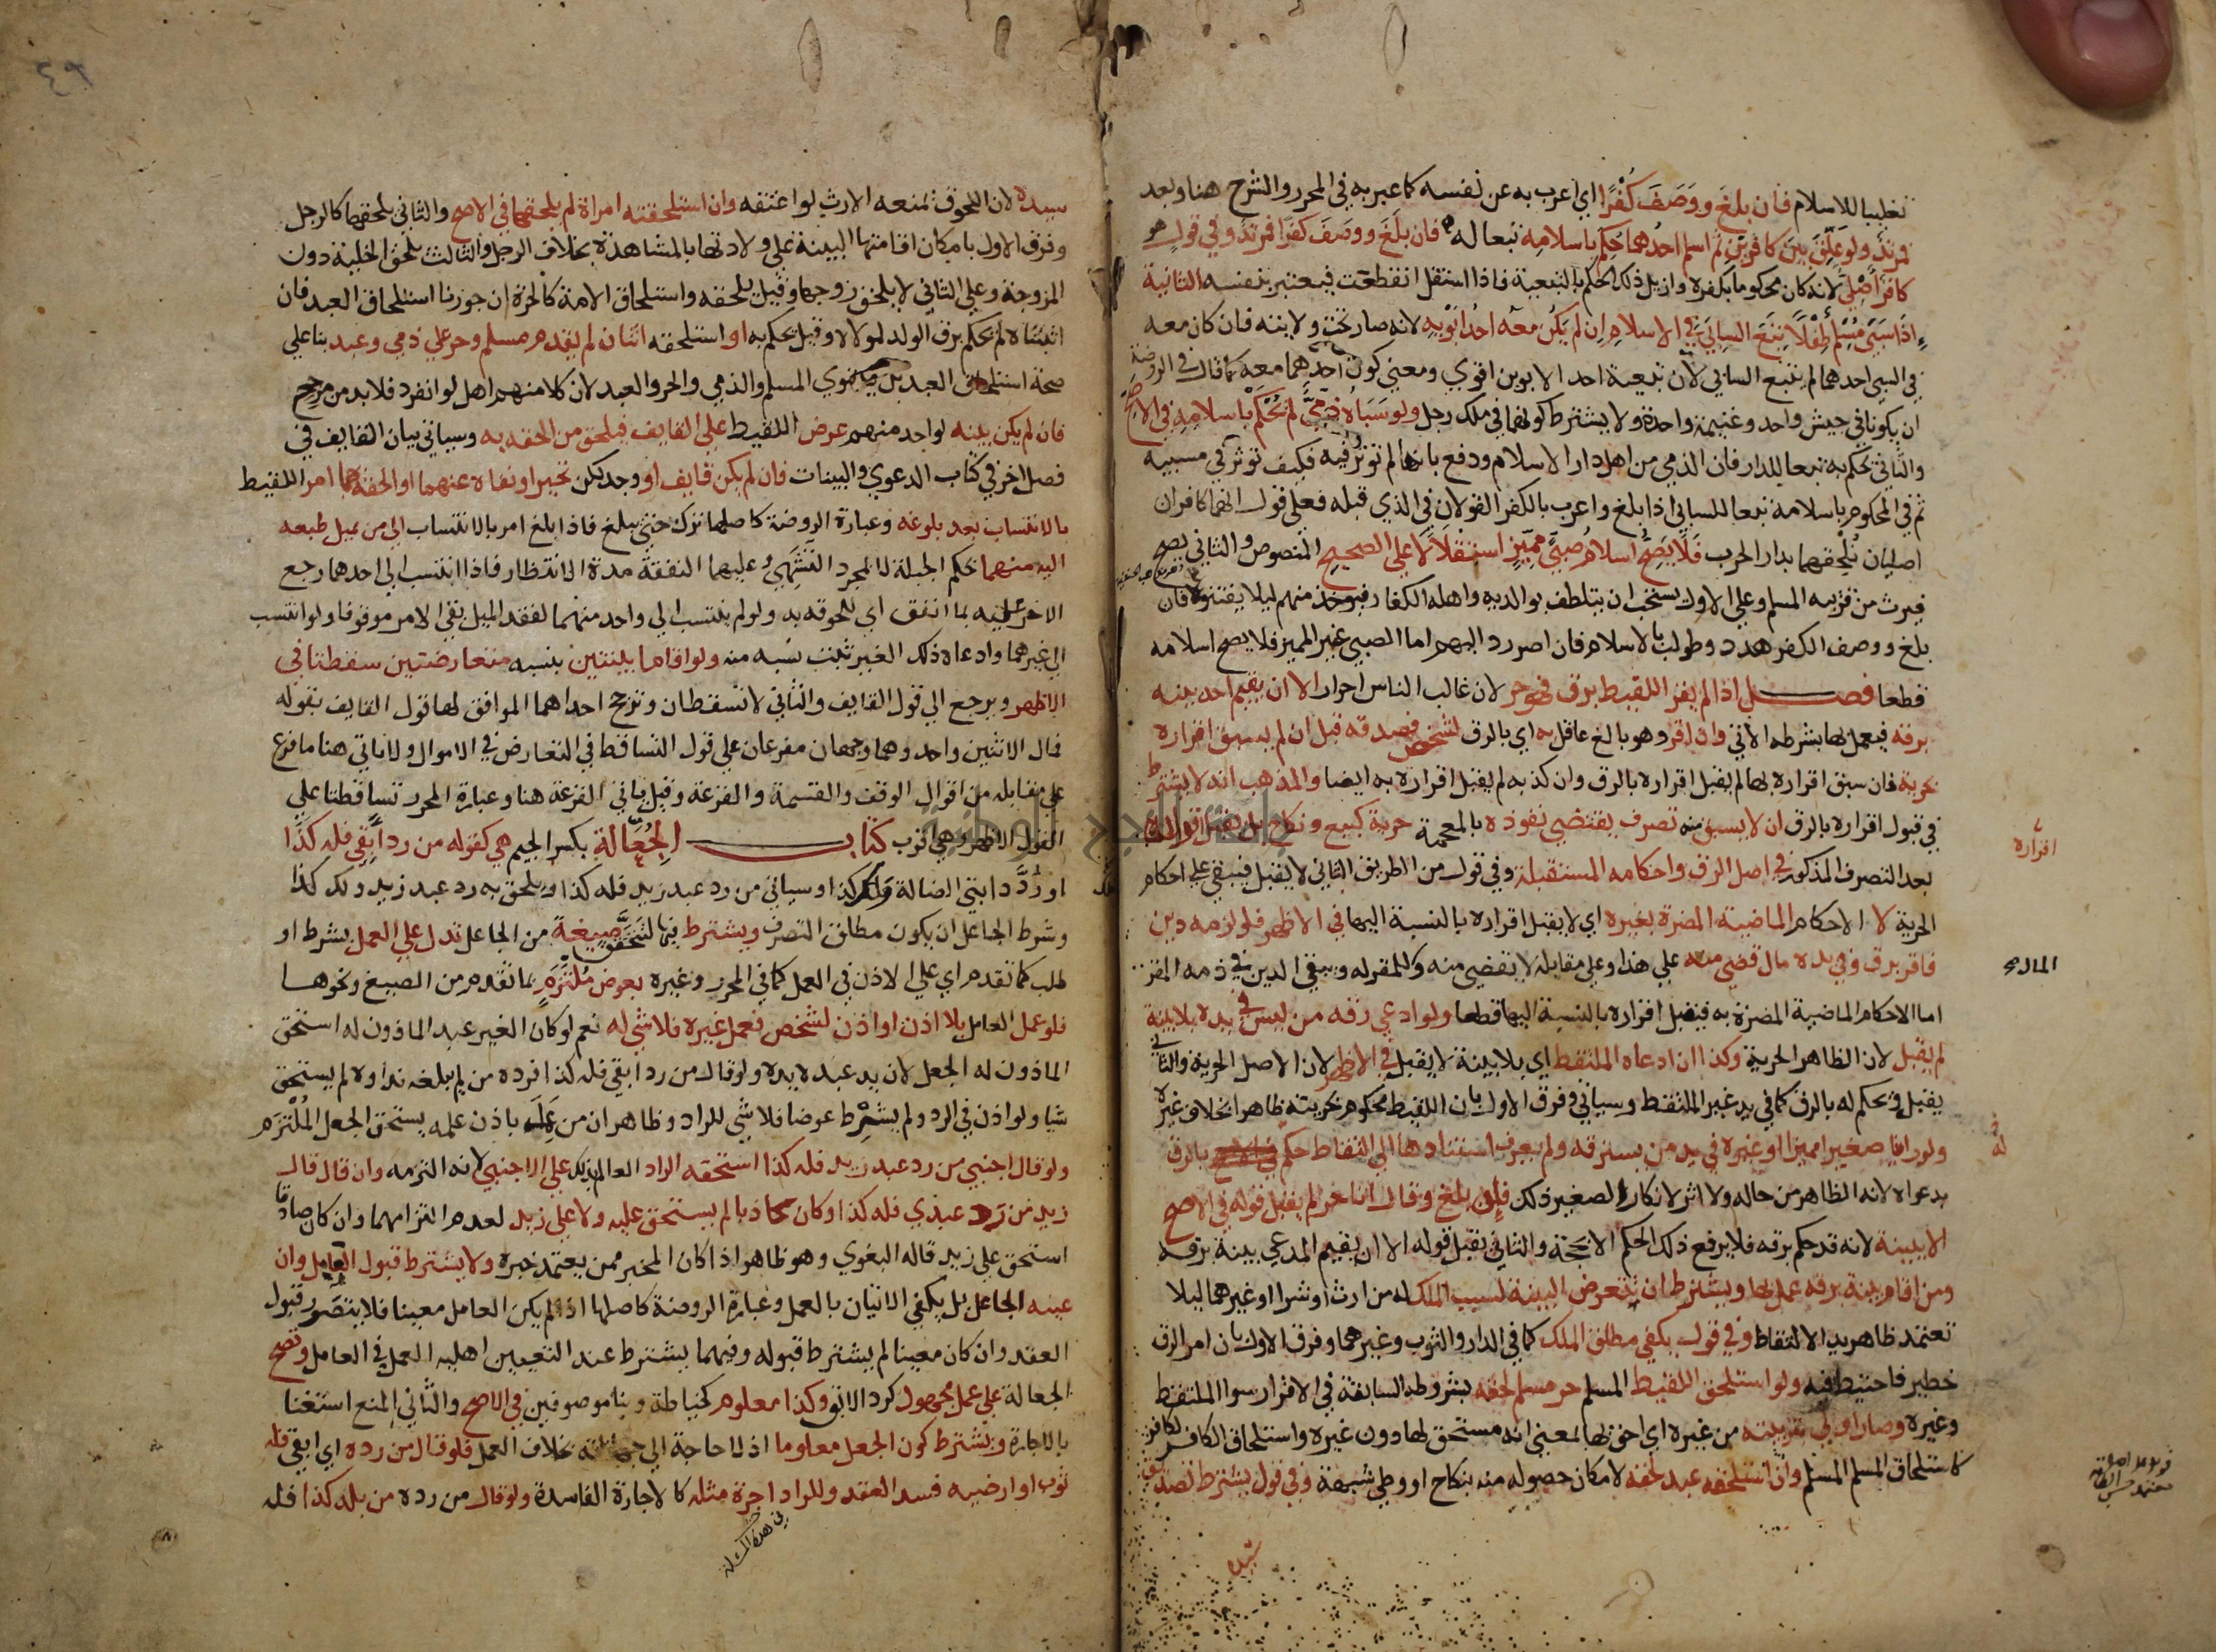 تغليبا للاسلام فان بلغ ووصف كُفْرًا اي اعرب به عن نفسه كما عبر به في المحرر والشرح هنا وبعد
فمرتد ولو علق بين كافرين ثم اسلم احدهما حكم باسلامه تبعا له فان بلغ ووصف كفرا فمرتد وفي قول هو
كافر اصلي لانه كان محكوما بكفره وازيل ذلك الحكم بالتبعية فاذا استقل انقطعت فيعتبر بنفسه الثانية
اذا سبى مسلم طفلا تبع السابي في الاسلام ان لم يكن معه احد ابويه لانه صار تحت ولايته فان كان معه
في السبي احدهما لم يتبع السابي لان تبعية احد الابوين اقوي ومعني كون احدهما معه كما قال في الروضة
ان يكونا في جيش واحد وغنيمة واحدة ولا يشترط كونهما في ملك رجل ولو سباه ذمي لم يحكم باسلامه في الاصح
والثاني يحكم به تبعا للدار فان الذمي من اهل دار الاسلام ودفع بانها لم توثر فيه فكيف توثر في مسبيه
ثم في المحكوم باسلامه تبعا للسابي اذا بلغ واعرب بالكفر القولان في الذي قبله فعلي قول انهما كافران
اصليان نلحقهما بدار الحرب فلا يصح اسلام صبي مميز استقلالا علي الصحيح المنصوص والثاني يصح
فيرث من قريبه المسلم وعلي الاول يستحب ان يتلطف بوالديه واهله الكفار فيوخذ منهم ليلا يفتنوه فان
بلغ ووصف الكفر هدد وطولب بالاسلام فان اصر رد اليهم اما الصبي غير المميز فلا يصح اسلامه
قطعا فصل اذا لم يقر اللقيط برق فهو حر لان غالب الناس احرار الا ان يقيم احد بينه
برقه فيعمل بها بشرطه الاتي وان اقر وهو بالغ عاقل به اي بالرق لشخص فصدقه قبل ان لم يسبق اقراره
بحرية فان سبق اقراره بها لم يقبل اقراره بالرق وان كذبه لم يقبل اقراره به ايضا والمذهب انه لا يشترط
في قبول اقراره بالرق ان لا يسبق منه تصرف يقتضي نفوذه بالمعجمة حرية كبيع ونكاح بل يقبل اقراره
بعد التصرف المذكور في اصل الرق واحكامه المستقبلة وفي قول من الطريق الثاني لا يقبل فيبقي علي احكام
الحرية لا الاحكام الماضية المضرة بغيره اي لا يقبل اقراره بالنسبة اليها في الاظهر فلو لزمه دين
فاقر برق وفي يده مال قضي منه علي هذا وعلي مقابله لا يقضي منه وللمقر له ويبقي الدين في ذمه المقر
اما الاحكام الماضية المضرة به فيقبل اقراره بالنسبة اليها قطعا ولو ادعي رقه من ليس في يده بلا بينة
لم يقبل لان الظاهر الحرية وكذا ان ادعاه الملتقط اي بلا بينة لا يقبل في الاظهر لان الاصل الحرية والثاني
يقبل ويحكم له بالرق كما في يد غير الملتقط وسياتي وفرق الاول بان اللقيط محكوم بحريته ظاهرا بخلاف غيره
ولو راينا صغيرا مميزا او غيره في يد من يسترقه ولم يعرف استنادها الي التقاط حكم بالرق
بدعواه لانه الظاهر من حاله ولا اثر لانكار الصغير ذلك فان بلغ وقال انا حر لم يقبل قوله في الاصح
الا ببينة لانه قد حكم برقه فلا يرفع ذلك الحكم الا بحجة والثاني يقبل قوله الا ان يقيم المدعي بينة برقه
ومن اقام بينة برقه عمل بها ويشترط ان تتعرض البينة لسبب الملك له من ارث او شرا او غيرهما ليلا
تعتمد ظاهر يد الالتقاط وفي قول يكفي مطلق الملك كما في الدار والثوب وغيرهما وفرق الاول بان امر الرق
خطير فاحتيط فيه ولو استلحق اللقيط المسلم حر مسلم لحقه بشروطه السابقة في الاقرار سوا الملتقط
وغيره وصار اولي بتربيته من غيره اي احق بها لمعني انه مستحق لها دون غيره واستلحاق الكافر لكافر
كاستلحاق المسلم المسلم وان استلحقه عبد لحقه لامكان حصوله منه بنكاح او وطي شبهة وفي قول يشترط تصديق
اقراره
له
سيده
سيده لان اللحوق يمنعه الارث لو اعتقه وان استلحقته امراة لم يلحقها في الاصح والثاني يلحقها كالرجل
وفرق الاول بامكان اقامتها البينة علي ولادتها بالمشاهدة بخلاف الرجل والثالث يلحق الخلية دون
المزوجة وعلي الثاني لا يلحق زوجها وقيل يلحقه واستلحاق الامة كالحرة ان جوزنا استلحاق العبد فان
اثبتناه لم نحكم برق الولد لمولاها وقيل نحكم به او استلحقه اثنان لم يقدم مسلم وحر علي ذمي وعبد بنا علي
صحة استلحاق العبد بل يستوي المسلم والذمي والحر والعبد لان كلا منهم اهل لو انفرد فلا بد من مرجح
فان لم يكن بينه لواحد منهم عرض اللقيط علي القايف فيلحق من الحقه به وسياتي بيان القايف في
فصل اخر في كتاب الدعوي والبينات فان لم يكن قايف او وجد لكن تحير او نفاه عنهما او الحقه بهما امر اللقيط
بالانتساب بعد بلوغه وعبارة الروضة كاصلها ترك حتي يبلغ فاذا بلغ امر بالانتساب الي من يميل طبعه
اليه منهما بحكم الجبلة لا لمجرد التشهي وعليهما النفقة مدة الانتظار فاذا انتسب الي احدهما رجع
الاخر عليه بما انفق اي للحوقه به ولو لم ينتسب الي واحد منهما لفقد الميل بقي الامر موقوفا ولو انتسب
الي غيرهما وادعاه ذلك الغير ثبت نسبه منه ولو اقاما بينتين بنسبه متعارضتين سقطتا في
الاظهر ويرجع الي قول القايف والثاني لا تسقطان وترجح احداهما الموافق لها قول القايف بقوله
فمال الاثنين واحد وهما وجهان مفرعان علي قول التساقط في التعارض في الاموال ولا ياتي هنا ما فرع
علي مقابله من اقوال الوقف والقسمة والقرعة وقيل ياتي القرعة هنا وعبارة المحرر تساقطتا علي
القول الاظهر وهي اقرب كتاب الجُعالة بكسر الجيم هي كقوله من رد ابقي فله كذا
او رُدَّ دابتي الضالة ولك كذا وسياتي من رد عبد زيد فله كذا ويلحق به رد عبد زيد ولك كذا
وشرط الجاعل ان يكون مطلق التصرف ويشترط فيها لتتحقق صيغة من الجاعل تدل علي العمل بشرط او
طلب كما تقدم اي علي الاذن في العمل كما في المحرر وغيره بعوض ملتزم بما تقدم من الصيغ ونحوها
فلو عمل العامل بلا اذن او اذن لشخص فعمل غيره فلا شي له نعم لو كان الغير عبد الماذون له استحق
الماذون له الجعل لان يد عبده يده ولو قال من رد ابقي فله كذا فرده من لم يبلغه نداوه لم يستحق
شيا ولو اذن في الرد ولم يشرط عوضا فلا شي للراد وظاهر ان من عمل باذن علمه يستحق الجعل الملتزم
ولو قال اجنبي من رد عبد زيد فله كذا استحقه الراد العالم بذلك علي الاجنبي لانه التزمه وان قال قال
زيد من رد عبدي فله كذا وكان كاذبا لم يستحق عليه ولا علي زيد لعدم التزامهما وان كان صادقا
استحق علي زيد قاله البغوي وهو ظاهر اذا كان المخبر ممن يعتمد خبره ولا يشترط قبول العامل وان
عينه الجاعل بل يكفي الاتيان بالعمل وعبارة الروضة كاصلها اذا لم يكن العامل معينا فلا يتصور قبول
العقد وان كان معينا لم يشترط قبوله وفيهما يشترط عند التعيين اهليه العمل في العامل وتصح
الجعالة علي عمل مجهول كرد الابق وكذا معلوم كخياطة وبنا موصوفين في الاصح والثاني المنع استغنا
بالاجارة ويشترط كون الجعل معلوما اذ لا حاجة الي جهالته بخلاف العمل فلو قال من رده اي ابقي فله
ثوب او ارضيه فسد العقد وللراد اجرة مثله كالاجارة الفاسدة ولو قال من رده من بلد كذا فله
في هذه المسئلة
٤٩